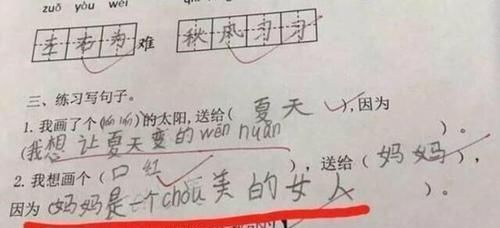 zuǒ yòu wéi
左右为难 秋风习习
三、练习写句子。
1. 我画了个()的太阳,送给(夏天),因为
(我想让夏天变的wēn nuǎn)。
2. 我想画个(口红),送给(妈妈),
因为(妈妈是一个chòu美的女人)。